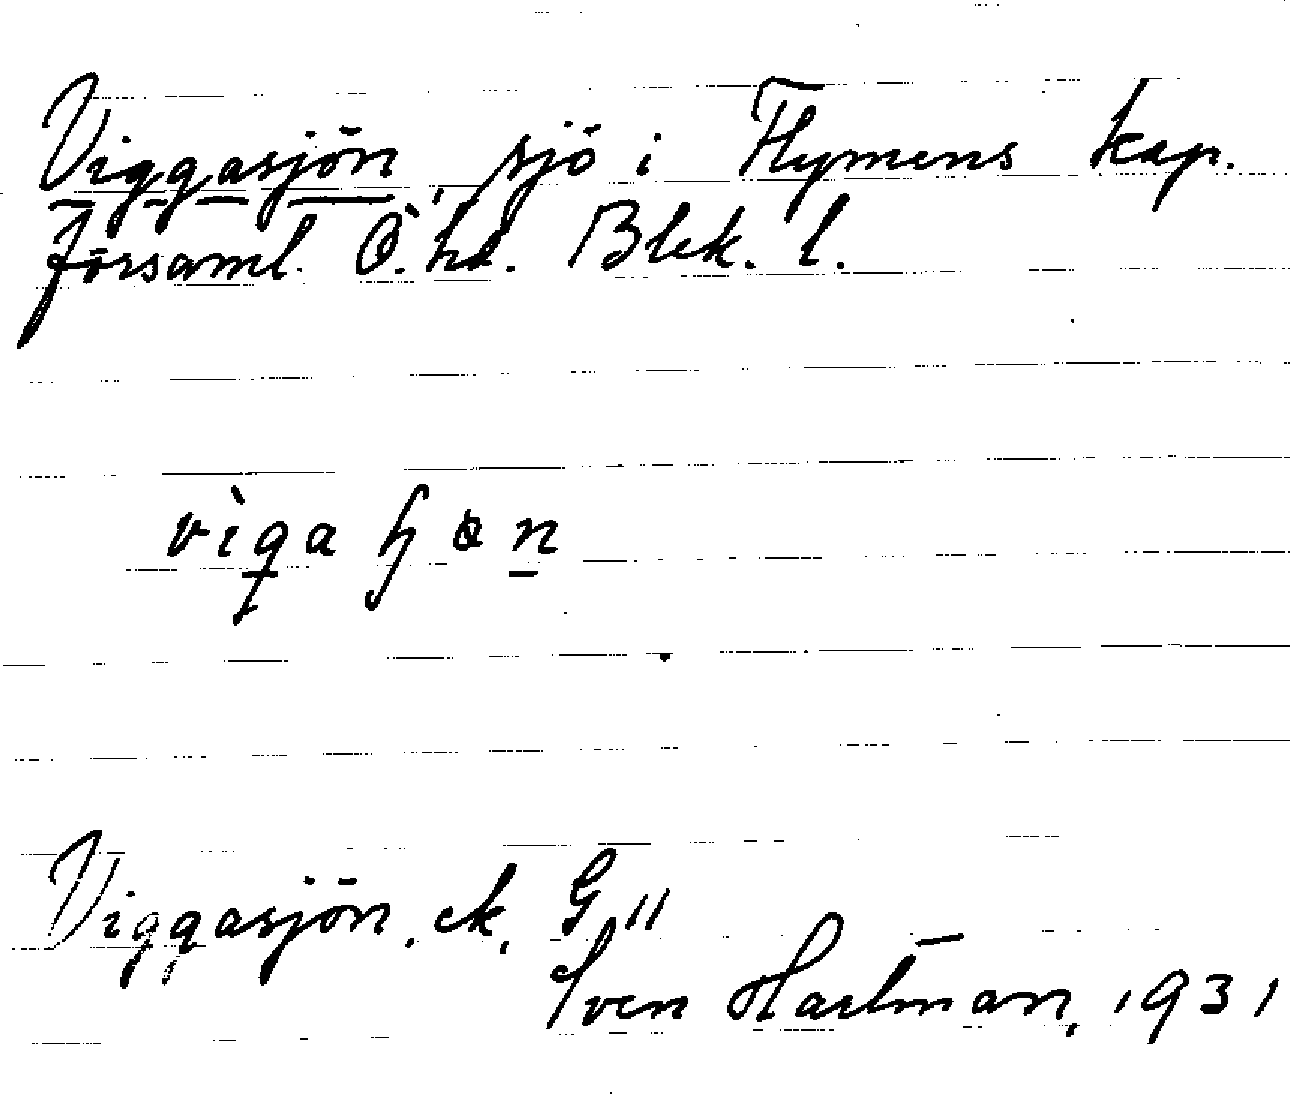 Viggasjön, sjö i Flymens kap.
församl. Ö. hd. Blek. l.
vìga ɧ ɵ n
Viggasjön. ek. G 11
Sven Hartman, 1931